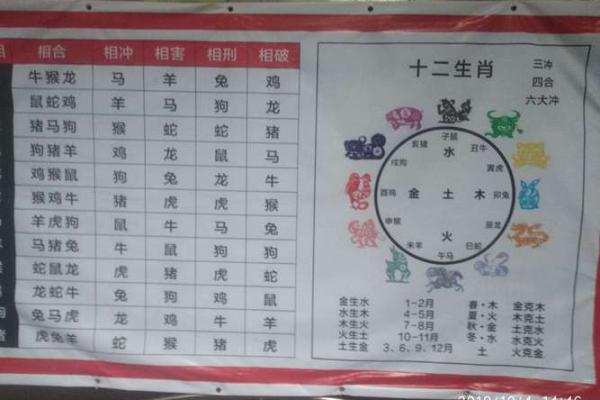 相合 相冲 相害 相刑 相破
牛猴龙 马 羊 兔 鸡
鼠蛇鸡 羊 马 狗 龙
猪马狗 猴 蛇 蛇 猪
狗猪羊 鸡 龙 鼠 马
鸡猴鼠 狗 兔 龙 牛
猴鸡牛 猪 虎 虎 猴
羊虎狗 鼠 牛 马 兔
马猪兔 牛 鼠 狗 狗
蛇鼠龙 虎 猪 虎 蛇
龙蛇牛 兔 狗 鸡 鼠
兔马虎 龙 鸡 牛 羊
虎兔羊 蛇 猴 猪 虎
十二生肖
三冲
四合
六大冲
子鼠
亥猪 水 丑牛
戌狗 寅虎
酉鸡 金 土 木 卯兔
申猴 辰龙
未羊 火 巳蛇
午马
金生水 1-2月 春·木 金克木
水生木 4-5月 夏·火 木克土
木生火 7-8月 秋·金 土克水
火生土 10-11月 冬·水 水克火
土生金 3、6、9、12月 土 火克金